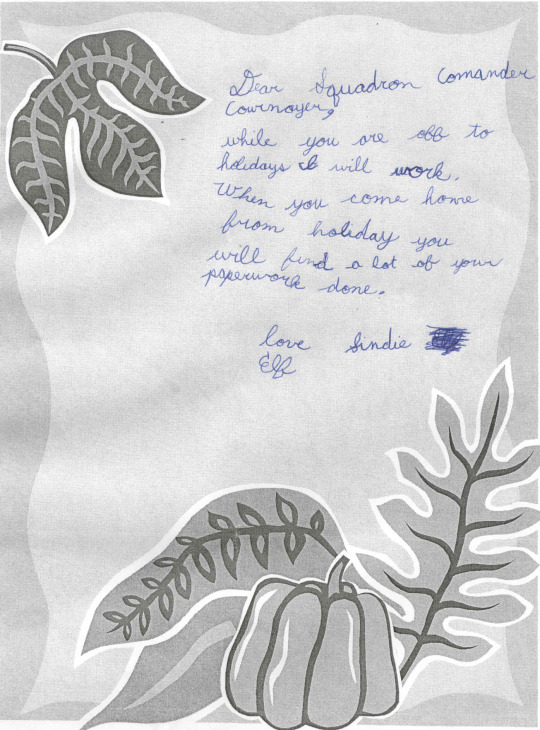 Dear Squadron Comander
Cournoyer,
while you are off to
holidays I will work.
When you come home
from holiday you
will find a lot of your
paperwork done.
love Sindie
Elf